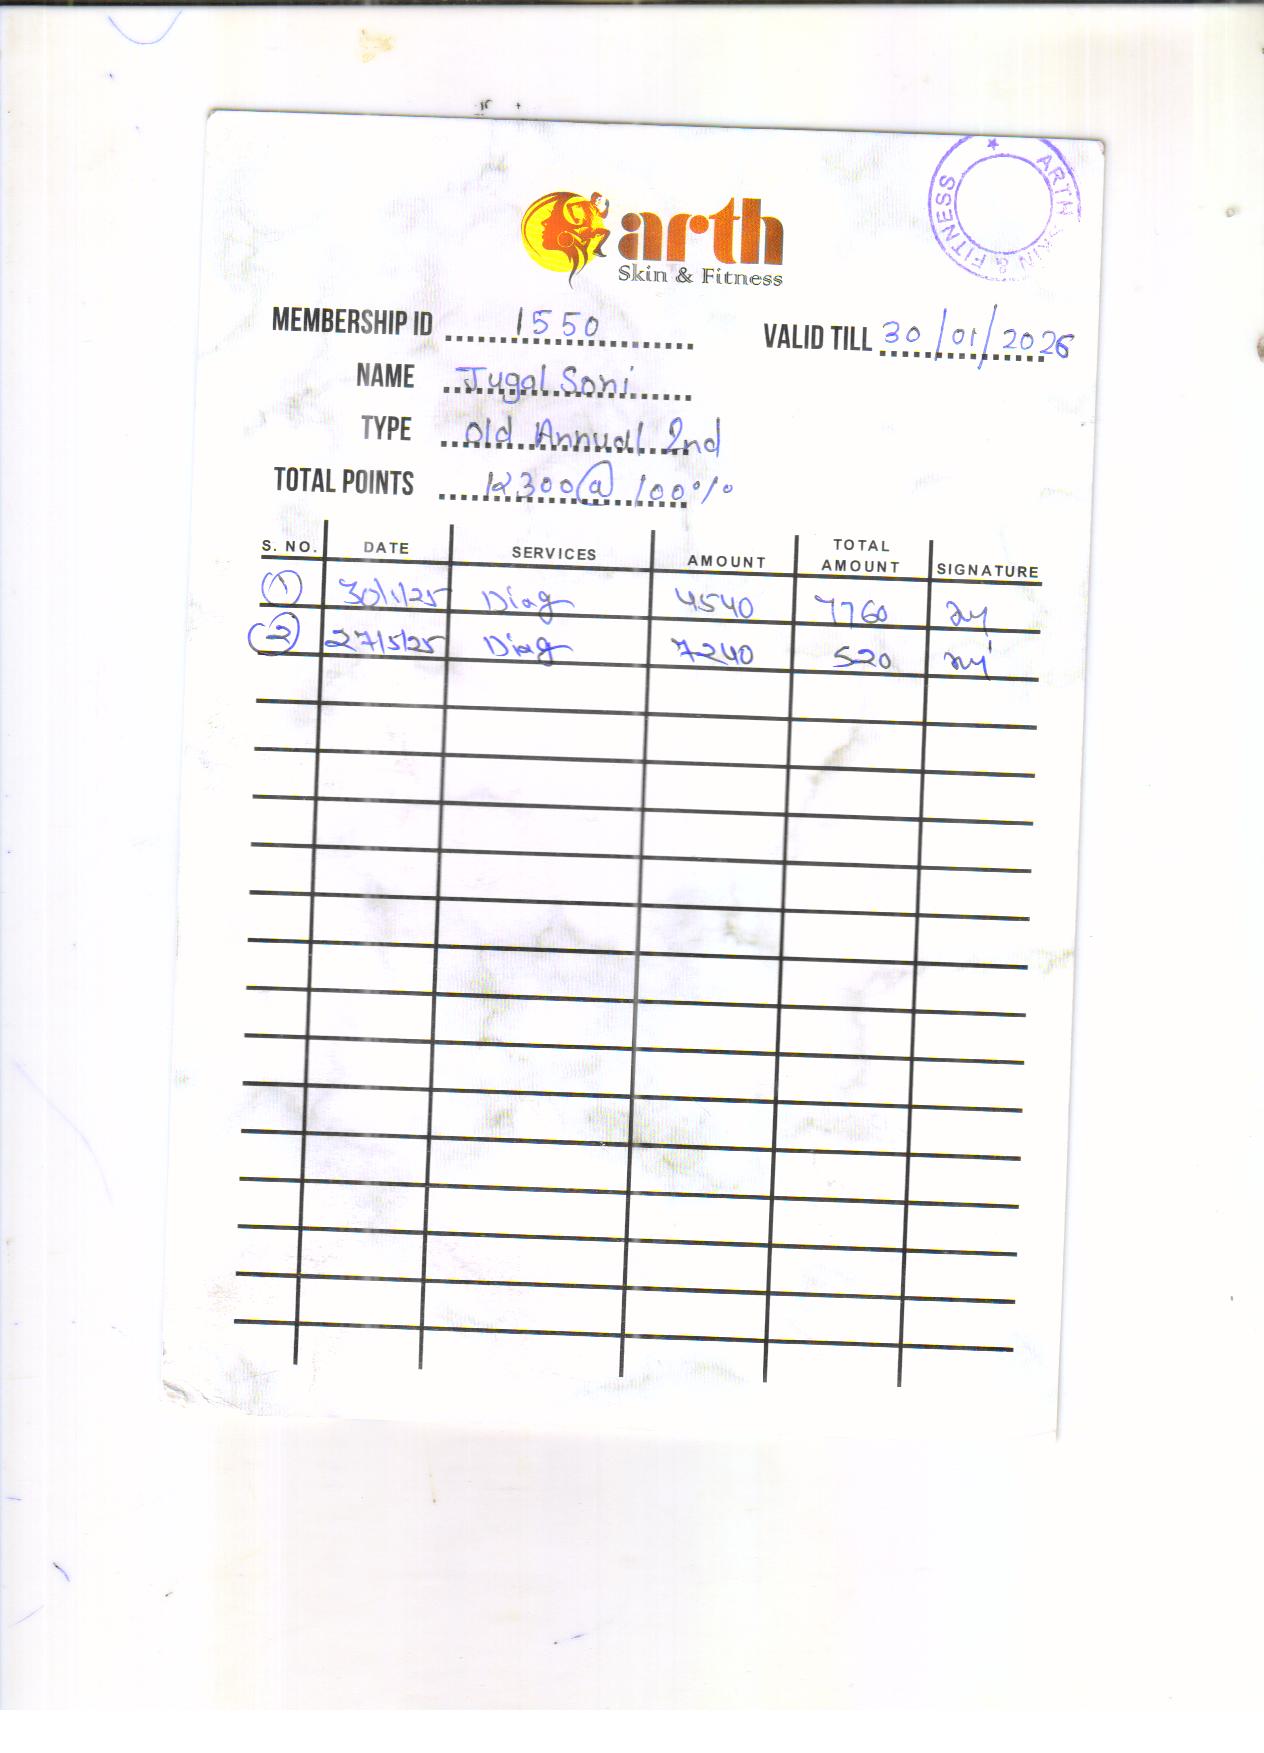 arth
Skin & Fitness
ARTH SKIN & FITNESS
MEMBERSHIP ID 1550
VALID TILL 30/01/2026
NAME Jugal Soni
TYPE Old Annual 2nd
TOTAL POINTS 12300@100%
S. NO. DATE SERVICES AMOUNT TOTAL AMOUNT SIGNATURE
1 30/1/25 Diag 4540 7760
2 27/5/25 Diag 7240 520